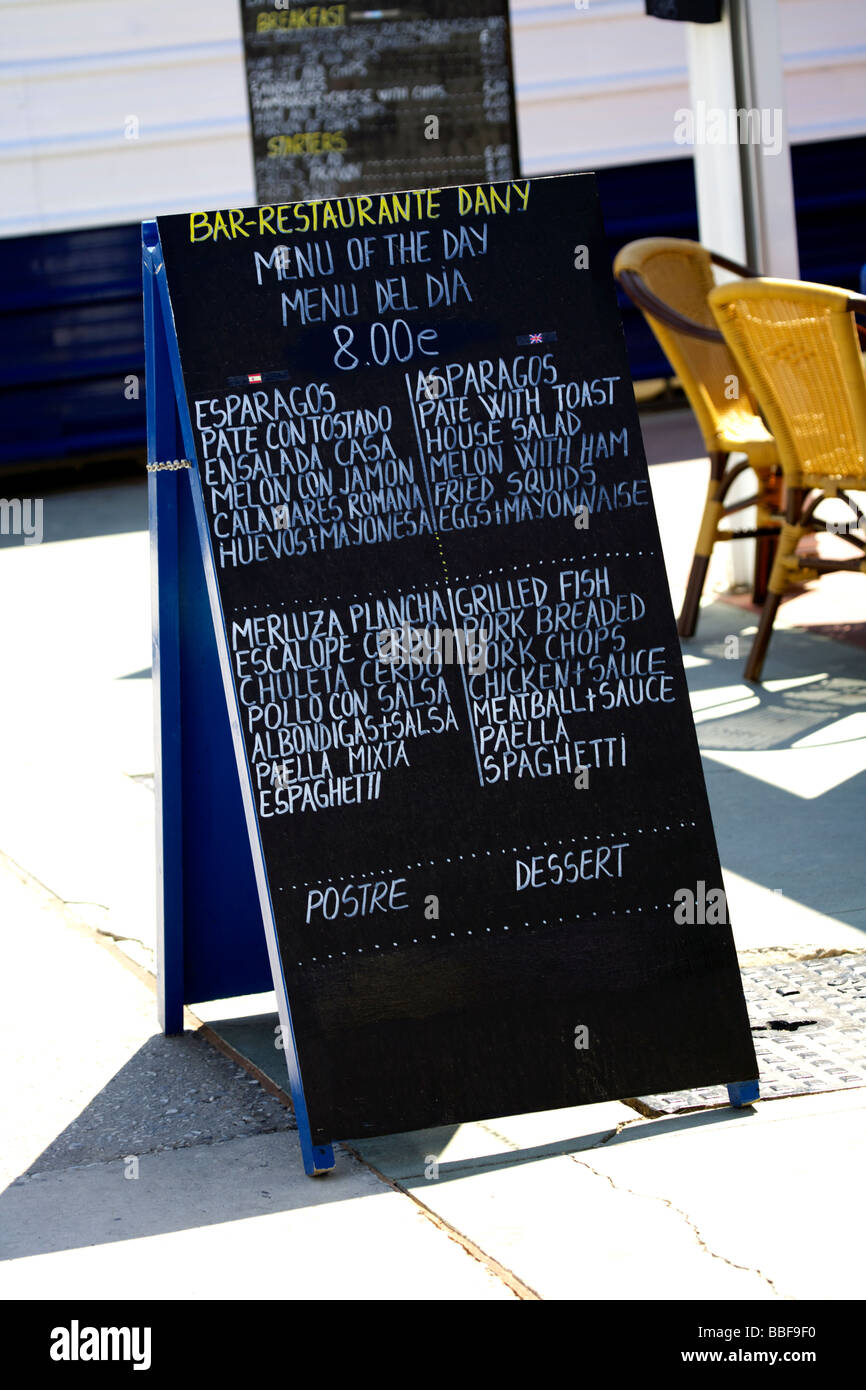 BREAKFAST
WITH CHIPS
STARTERS
BAR-RESTAURANTE DANY
MENU OF THE DAY
MENU DEL DIA
8.00e
ESPARAGOS
PATE CON TOSTADO
ENSALADA CASA
MELON CON JAMON
CALAMARES ROMANA
HUEVOS+MAYONESA
ASPARAGOS
PATE WITH TOAST
HOUSE SALAD
MELON WITH HAM
FRIED SQUIDS
EGGS+MAYONNAISE
MERLUZA PLANCHA
ESCALOPE CERDO
CHULETA CERDO
POLLO CON SALSA
ALBONDIGAS+SALSA
PAELLA MIXTA
ESPAGHETTI
GRILLED FISH
PORK BREADED
PORK CHOPS
CHICKEN+SAUCE
MEATBALL+SAUCE
PAELLA
SPAGHETTI
POSTRE
DESSERT
alamy
Image ID: BBF9F0
www.alamy.com